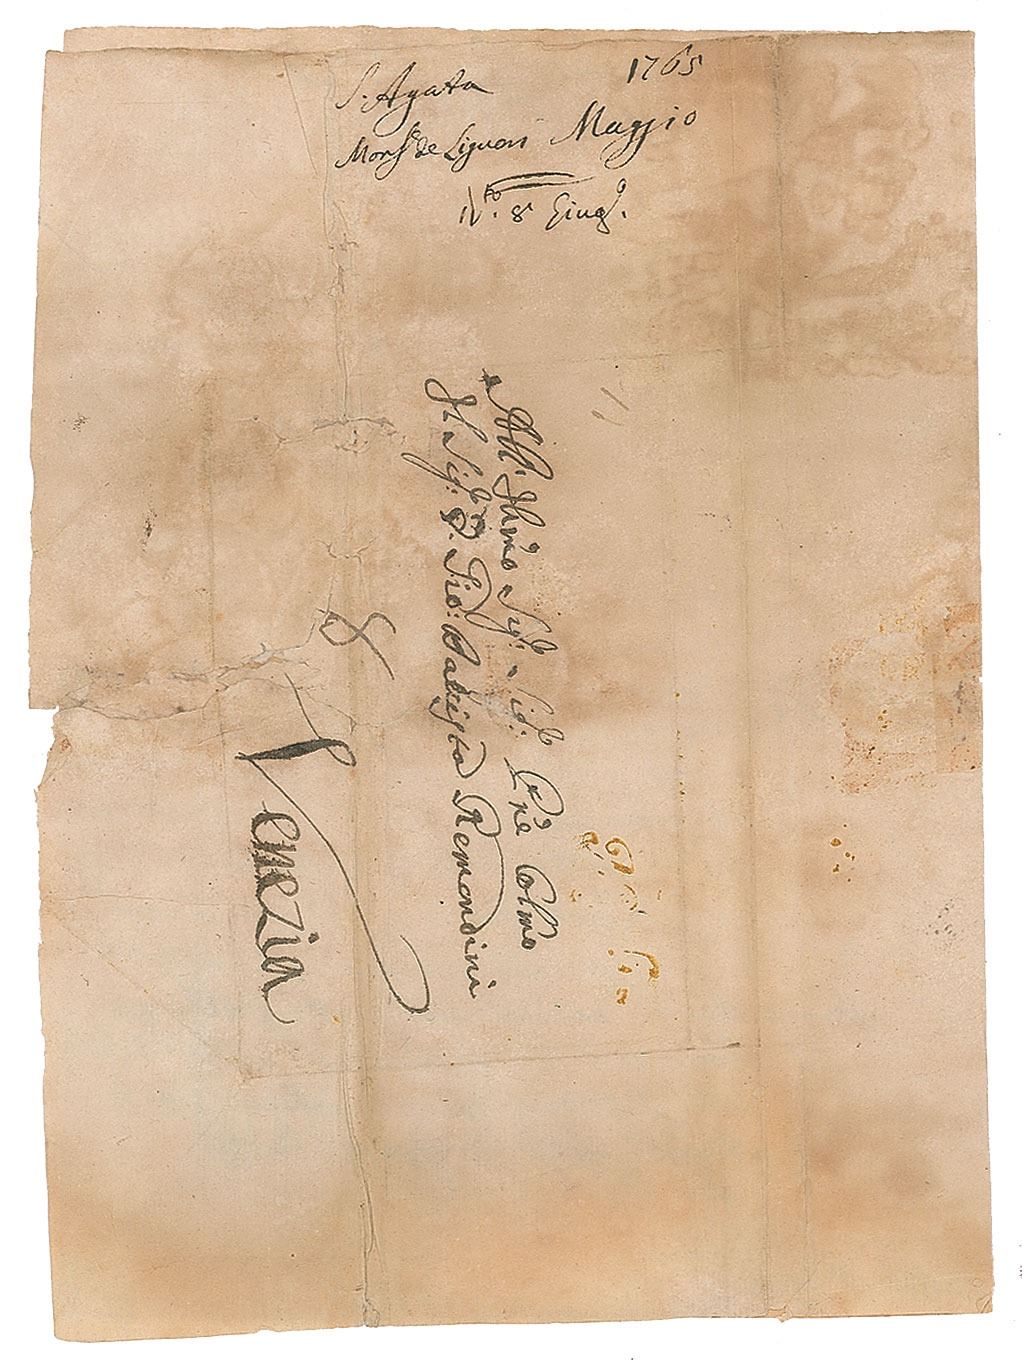 S. Agata 1765
Mons.e de Liguori Maggio
N.o 8 Giug.o
All' Illmo Sig.r Sig.r Prē Colmo
Il Sig.r D. Gio: Battista Remondini
8
Venezia